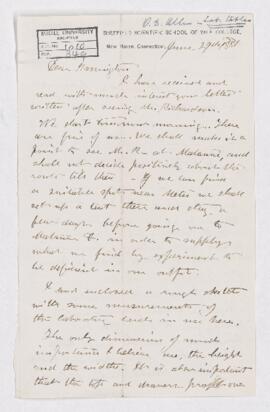 O. D. Allen
McGILL UNIVERSITY
ARCHIVES
ACC. NO.
REF.
SHEFFIELD SCIENTIFIC SCHOOL OF YALE COLLEGE,
New Haven, Connecticut, June 29th 1881
Dear Harrington
I have received and
read with much interest your letter
written after seeing Mr Richardson.
We start tomorrow morning. There
are five of us. We shall make it a
point to see Mr. R— at Matane, and
shall not decide positively about the
route till then — If we can find
a suitable spot near Metis we shall
set up a tent there and stay a
few days before going on to
Matane in order to supply
what we find by experiment to
be deficient in our outfit.
I send enclosed a rough sketch
with some measurements of
the laboratory desks in use here.
The only dimensions of much
importance I believe are, the height
and the width. It is also important
that the top and drawers project over